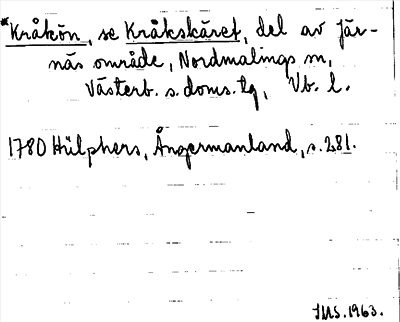 *Kråkön, se Kråkskäret, del av Jär-
näs område, Nordmalings sn,
Västerb. s. doms. tg, Vb. l.
1780 Hülphers, Ångermanland, s. 281.
IMS. 1963.